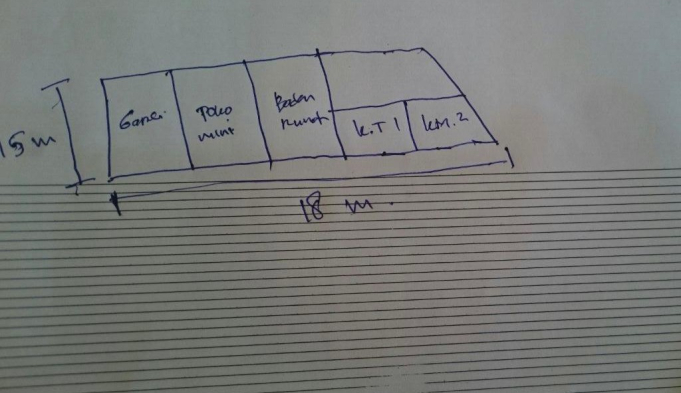 15 m
Garasi
Toko
mini
Badan
Rumah
K.T 1
KM.2
18 m.